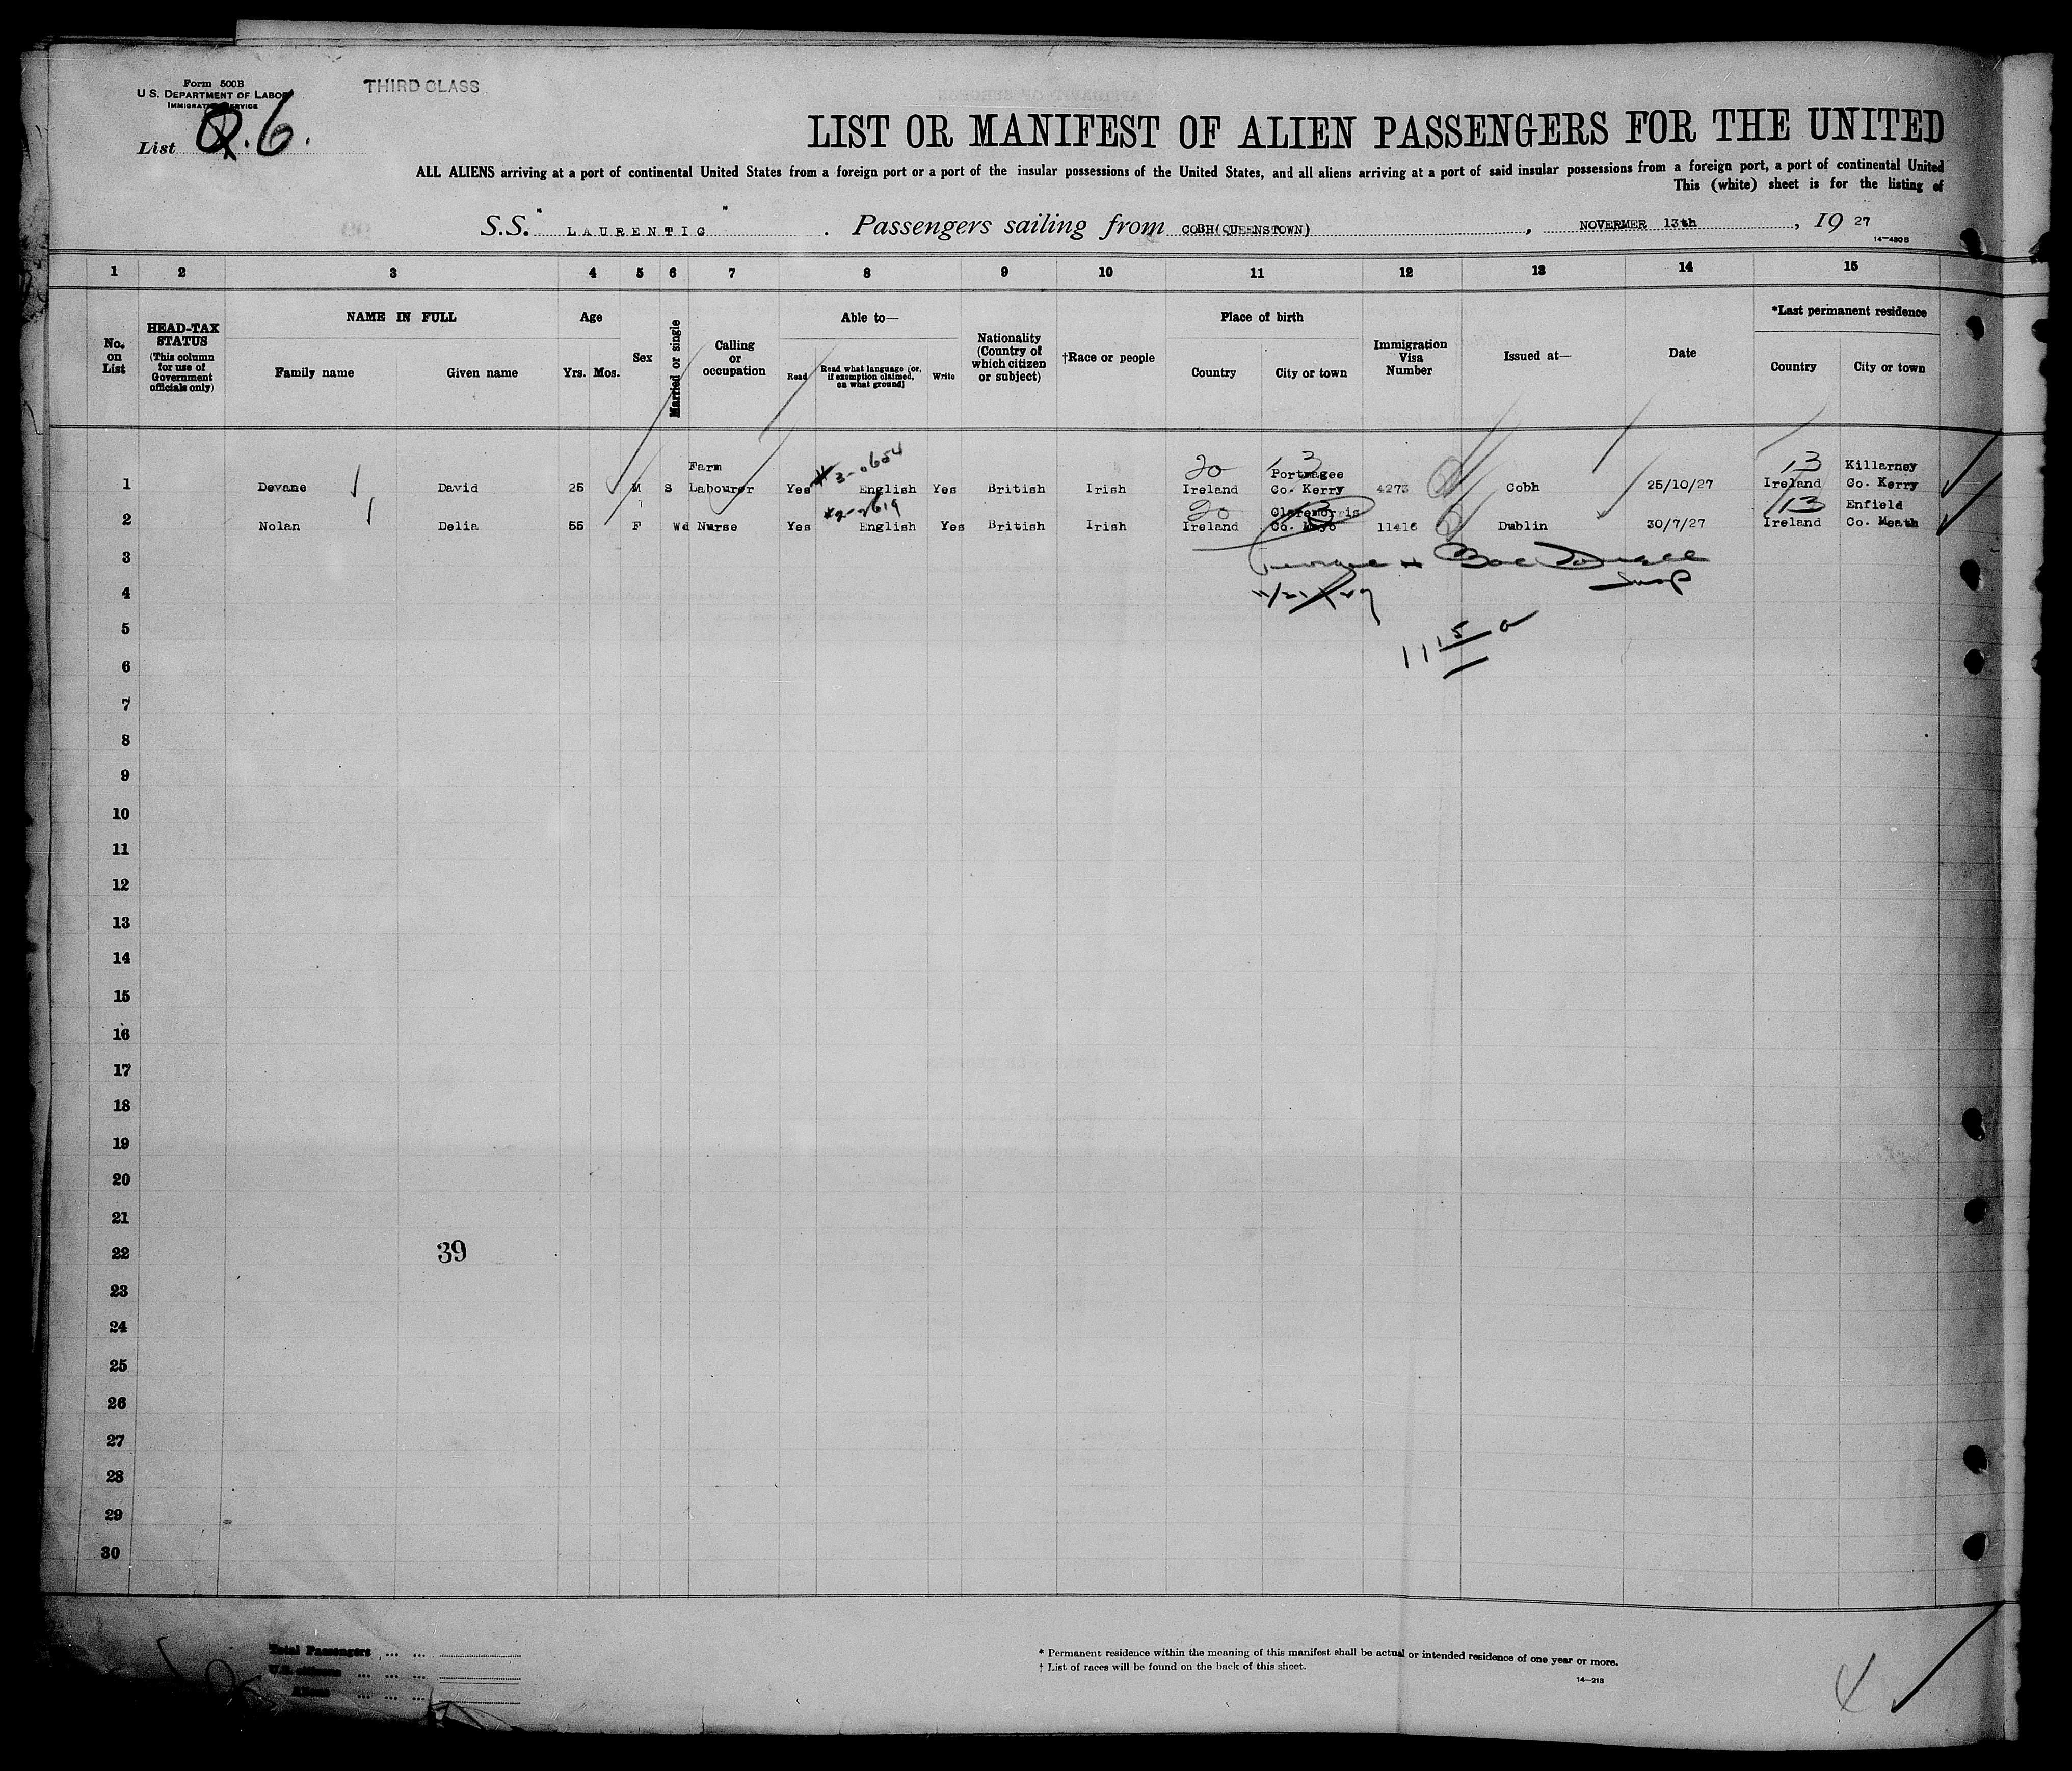 Form 500B
U.S. DEPARTMENT OF LABOR
IMMIGRATION SERVICE
THIRD CLASS
List Q.6.
LIST OR MANIFEST OF ALIEN PASSENGERS FOR THE UNITED
ALL ALIENS arriving at a port of continental United States from a foreign port or a port of the insular possessions of the United States, and all aliens arriving at a port of said insular possessions from a foreign port, a port of continental United
This (white) sheet is for the listing of
S.S. "LAURENTIC". Passengers sailing from COBH(QUEENSTOWN), NOVERMER 13th, 19 27
14—480 B
1 2 3 4 5 6 7 8 9 10 11 12 13 14 15
No. on List
HEAD-TAX STATUS
(This column for use of Government officials only)
NAME IN FULL
Family name Given name
Age
Yrs. Mos.
Sex
Married or single
Calling or occupation
Able to—
Read
Read what language (or, if exemption claimed, on what ground)
Write
Nationality (Country of which citizen or subject)
†Race or people
Place of birth
Country City or town
Immigration Visa Number
Issued at—
Date
*Last permanent residence
Country City or town
Farm 20 13 Portmagee 13 Killarney
1 Devane David 25 M S Labourer Yes English Yes British Irish Ireland Co. Kerry 4273 Cobh 25/10/27 Ireland Co. Kerry
20 Claremorris 13 Enfield
2 Nolan Delia 55 F Wd Nurse Yes English Yes British Irish Ireland Co. Mayo 11416 Dublin 30/7/27 Ireland Co. Meath
3
4
5
6
7
8
9
10
11
12
13
14
15
16
17
18
19
20
21
22 39
23
24
25
26
27
28
29
30
Total Passengers ... ...
U.S. citizens ... ... ...
Aliens ... ... ...
* Permanent residence within the meaning of this manifest shall be actual or intended residence of one year or more.
† List of races will be found on the back of this sheet.
14—218